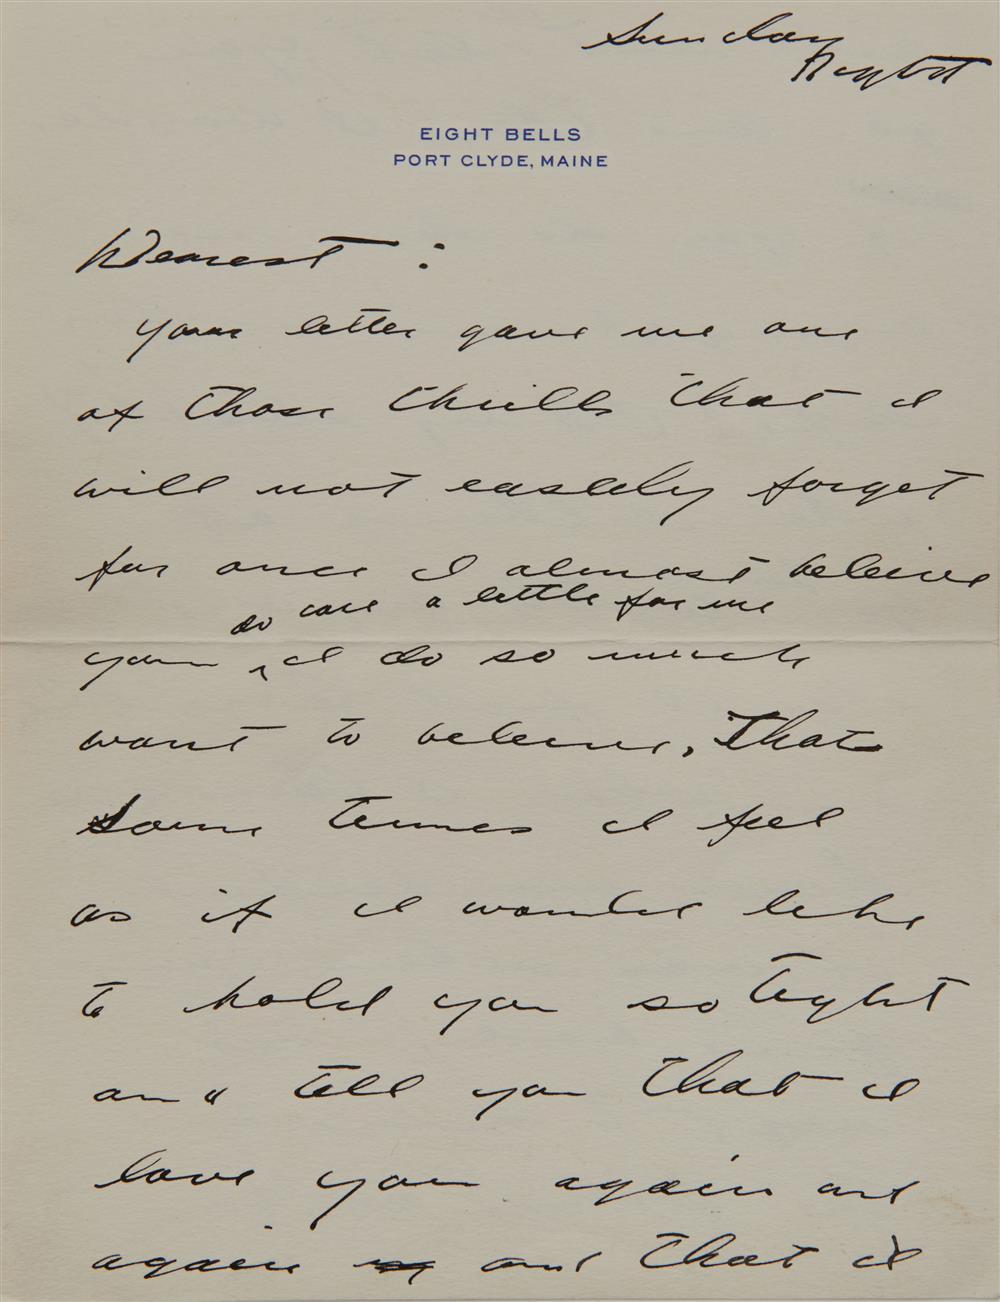 Sunday
Night
EIGHT BELLS
PORT CLYDE, MAINE
Dearest :
your letter gave me one
of those thrills that I
will not easely forget
for once I almost beleive
do care a little for me
you ^ I do so much
want to beleive, That
Some times I feel
as if I would like
to hold you so tight
and tell you that I
love you again and
again and that I